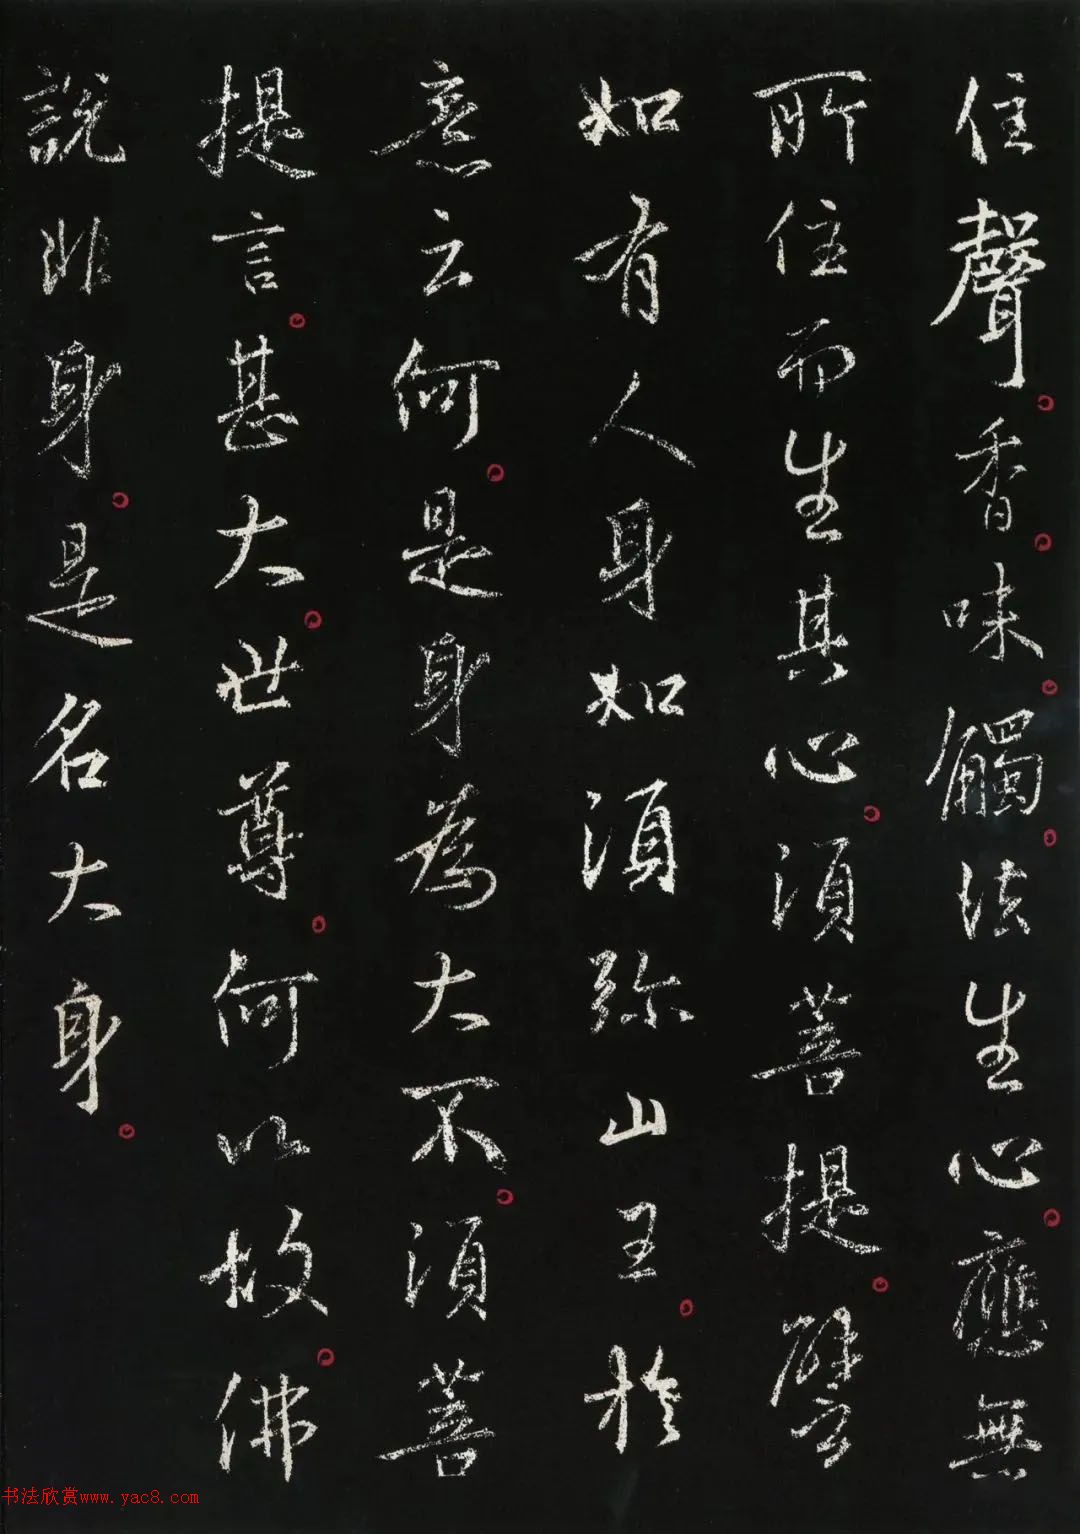 住聲。香。味。觸。法生心。應無
所住而生其心。須菩提。譬
如有人身如須弥山王。於
意云何。是身為大不。須菩
提言。甚大。世尊。何以故。佛
說非身。是名大身。
书法欣赏www.yac8.com